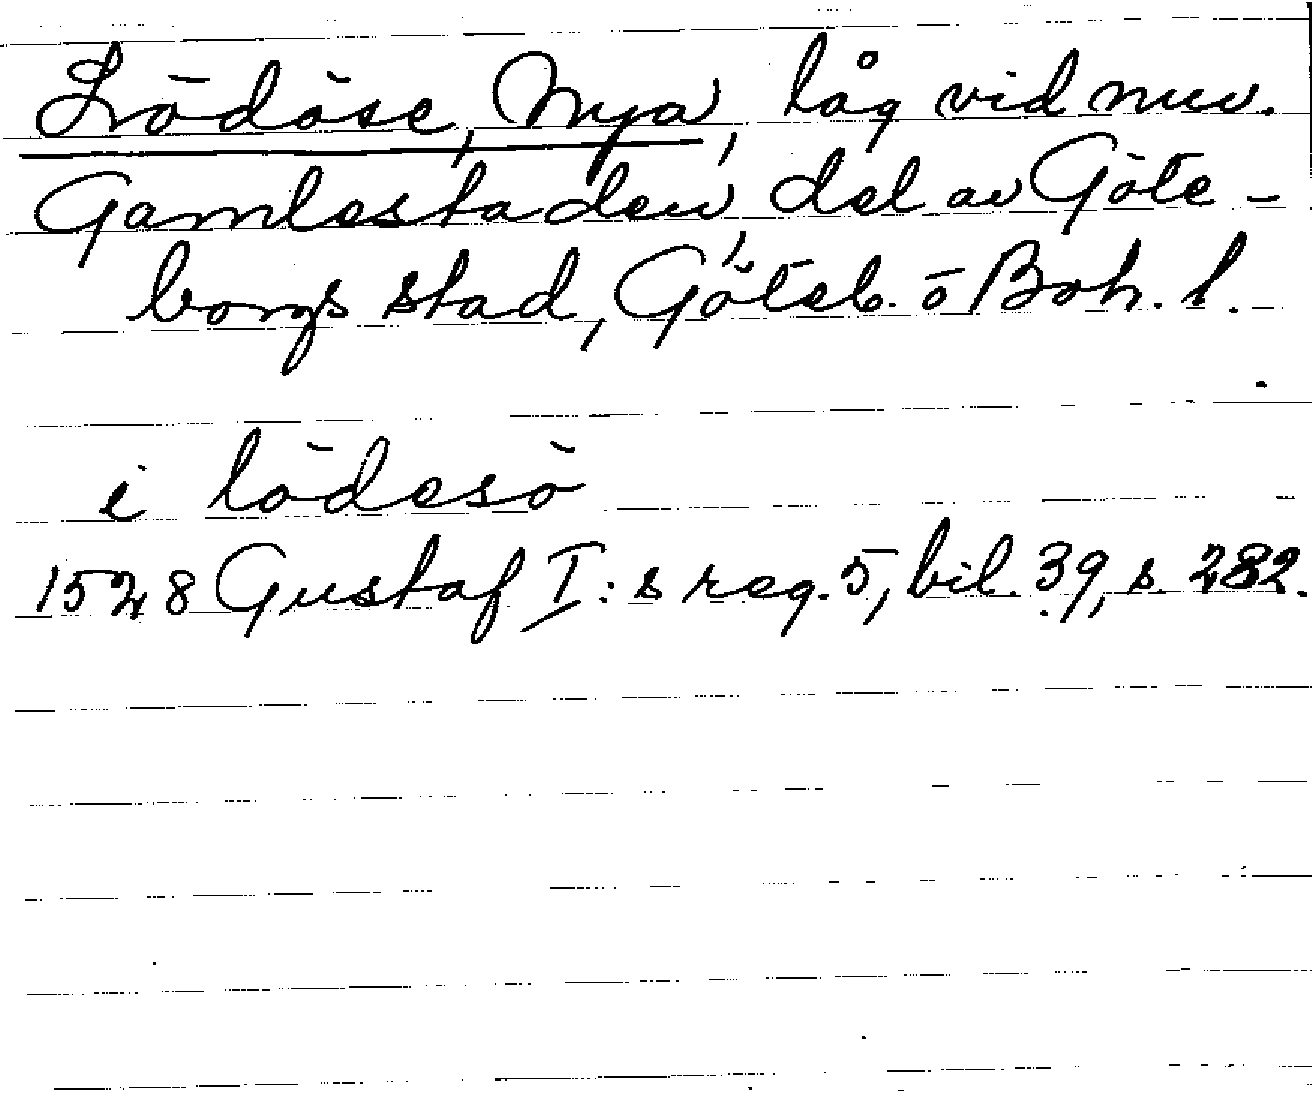 Lödöse, Nya, låg vid nuv.
Gamlestaden, del av Göte-
borgs stad, Göteb. ö Boh. l.
i lödesö
1528 Gustaf I:s reg. 5, bil. 39, s. 282.